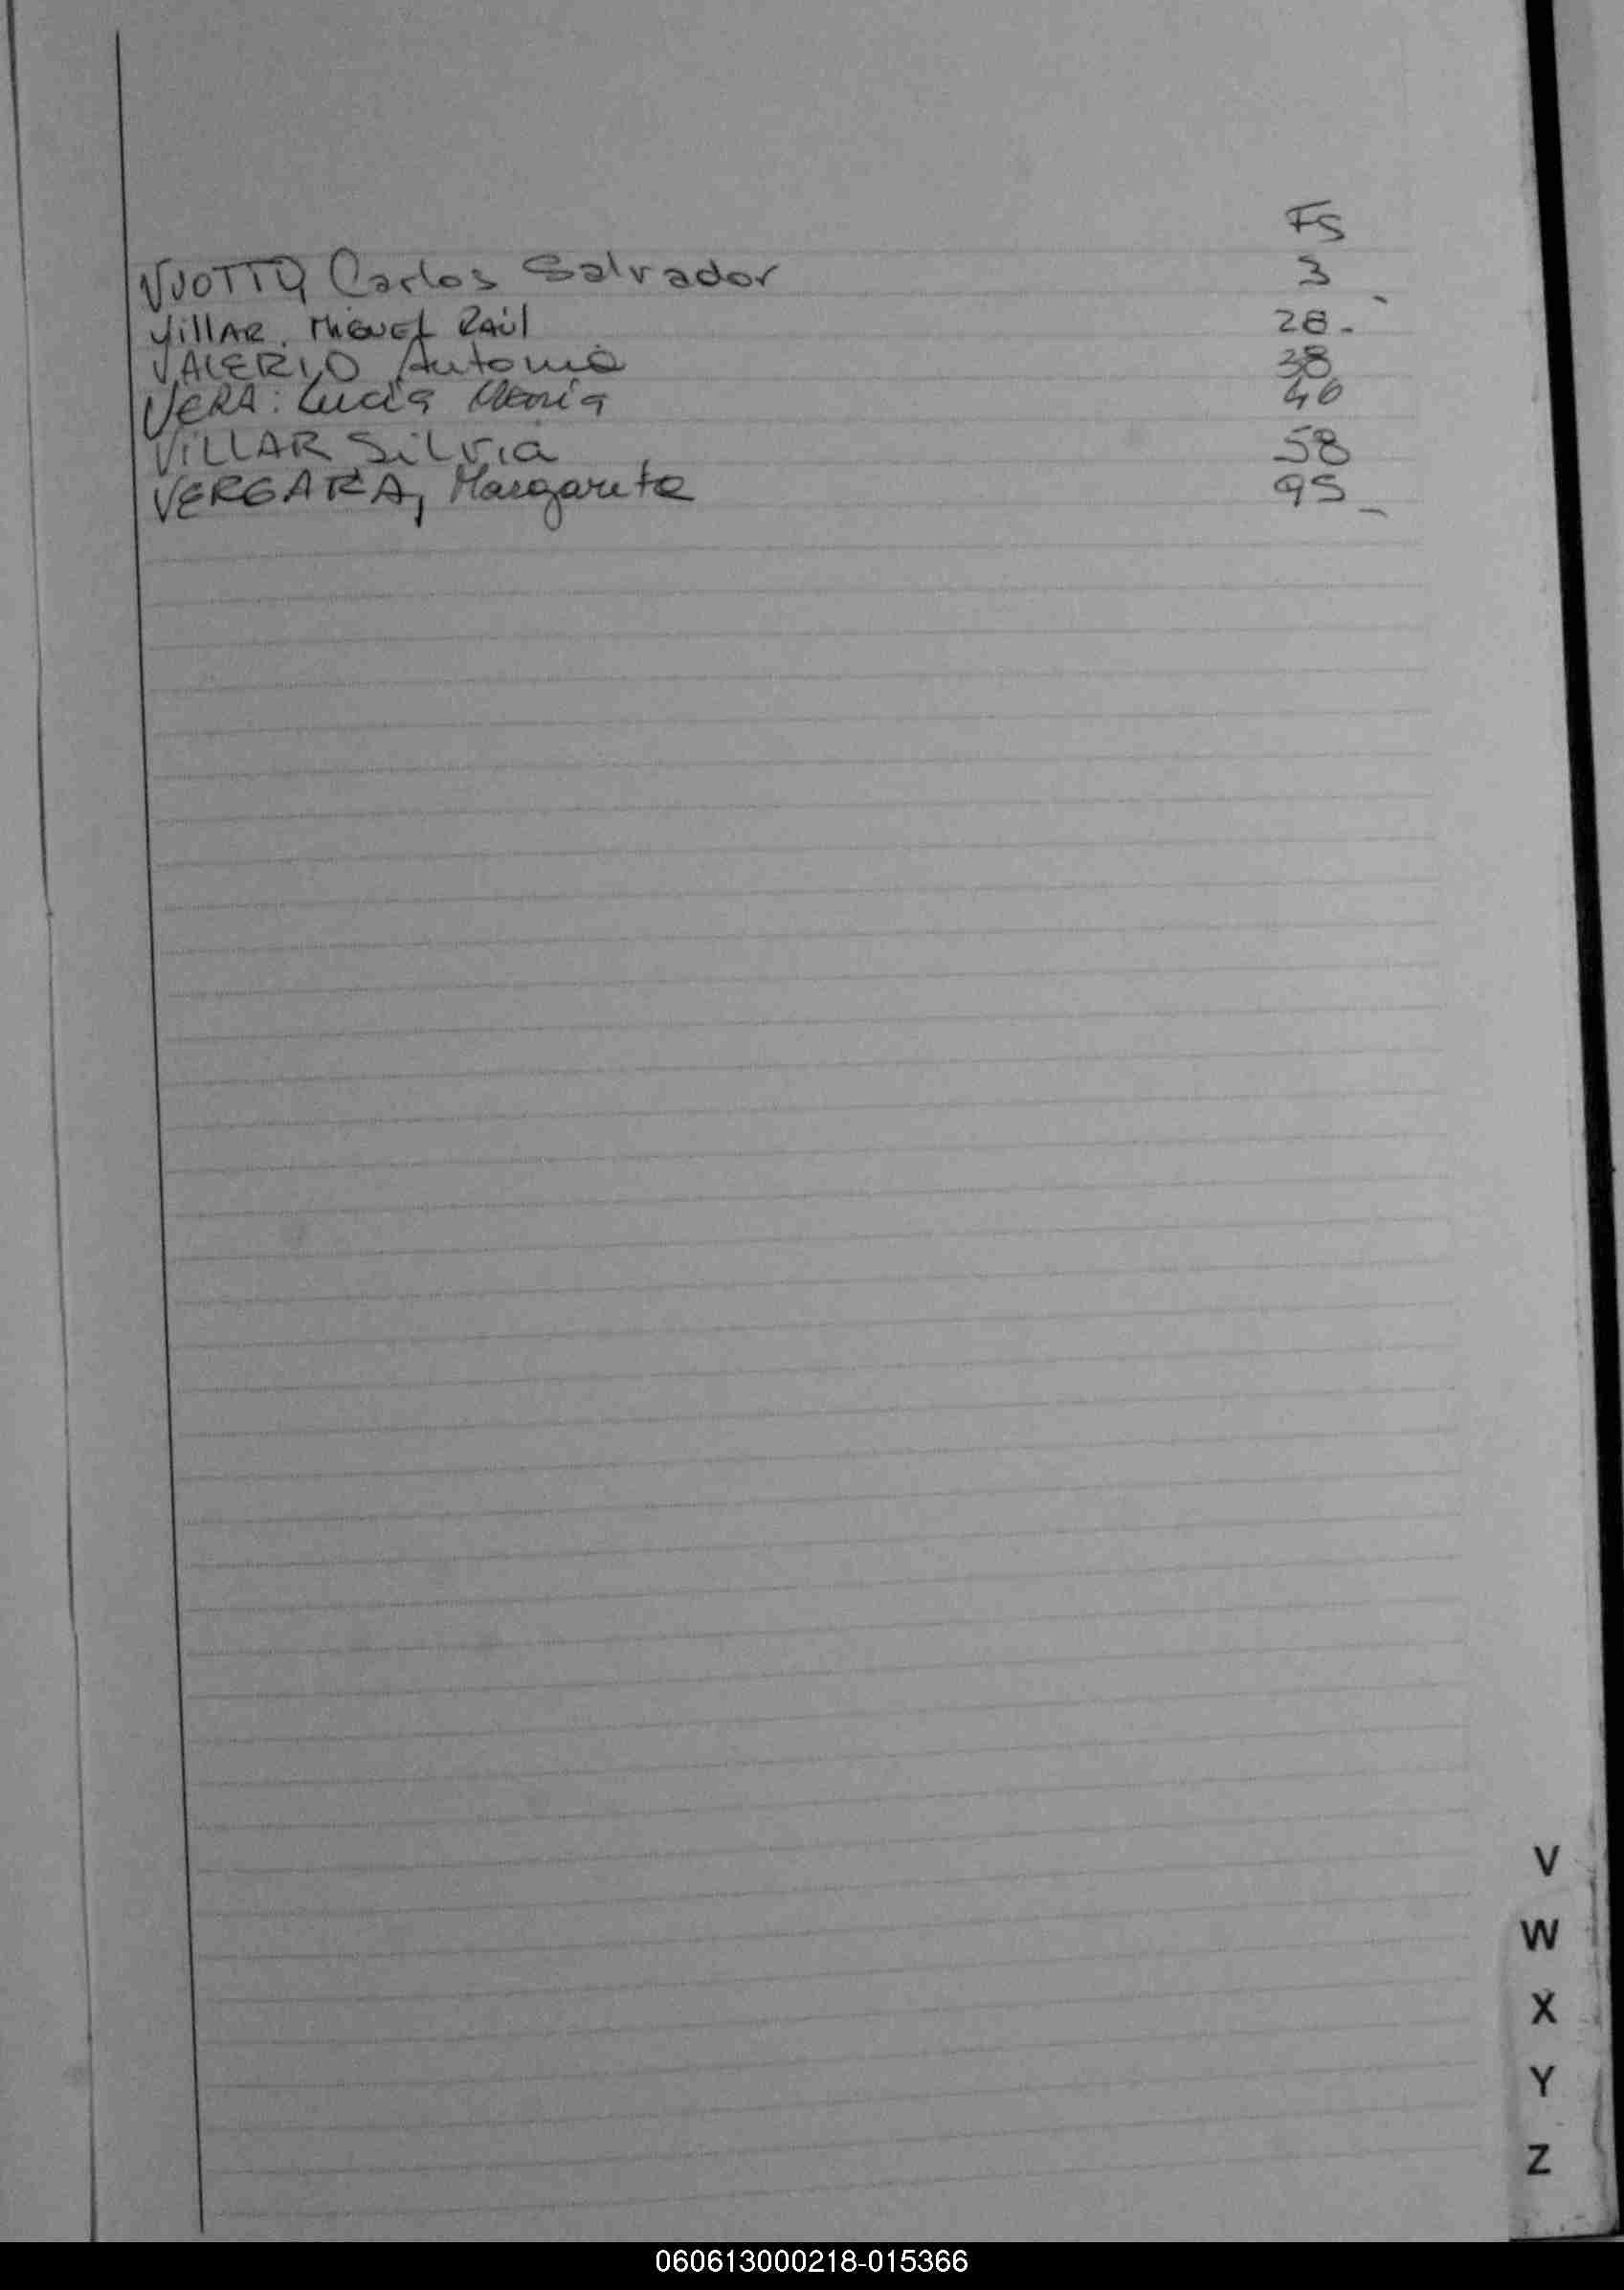 FS
VUOTTO, Carlos Salvador 3
VillAR. MiGUEL RAÚl 28.-
VALERIO Antonio 38
VERA: Lucía María 40
ViLLAR SiLvia 58
VERGARA, Margarita 95_
V
W
X
Y
Z
060613000218-015366